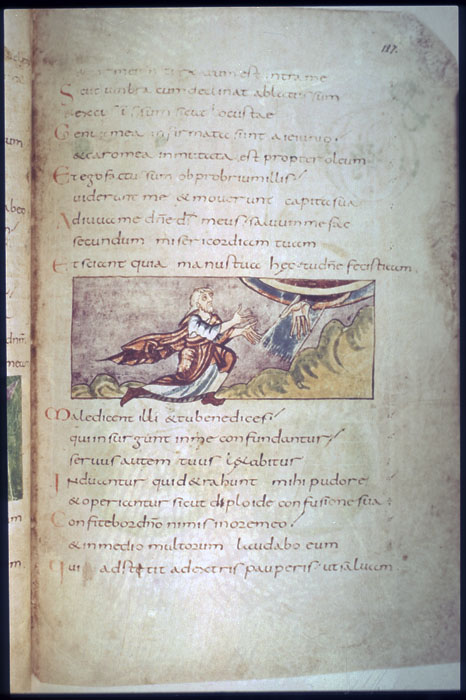 117.
meum turbatum est intra me
Sicut umbra cum declinat ablatus sum
& excussus sum sicut locustae
Genua mea infirmata sunt a ieiunio.
& caro mea inmutata est propter oleum
Et ego factus sum obprobrium illis/
viderunt me & moverunt capita sua
Adiuva me dñe dš meus saluum me fac
secundum misericordiam tuam
Et sciant quia manus tua hęc & tu dñe fecisti eam.
Maledicent illi & tu benedices/
qui insurgunt in me confundantur/
servus autem tuus lętabitur
Induantur qui detrahunt mihi pudore
& operiantur sicut diploide confusione sua:
Confitebor dño nimis in ore meo/
& in medio multorum laudabo eum
Qui adstetit a dextris pauperis ut saluam